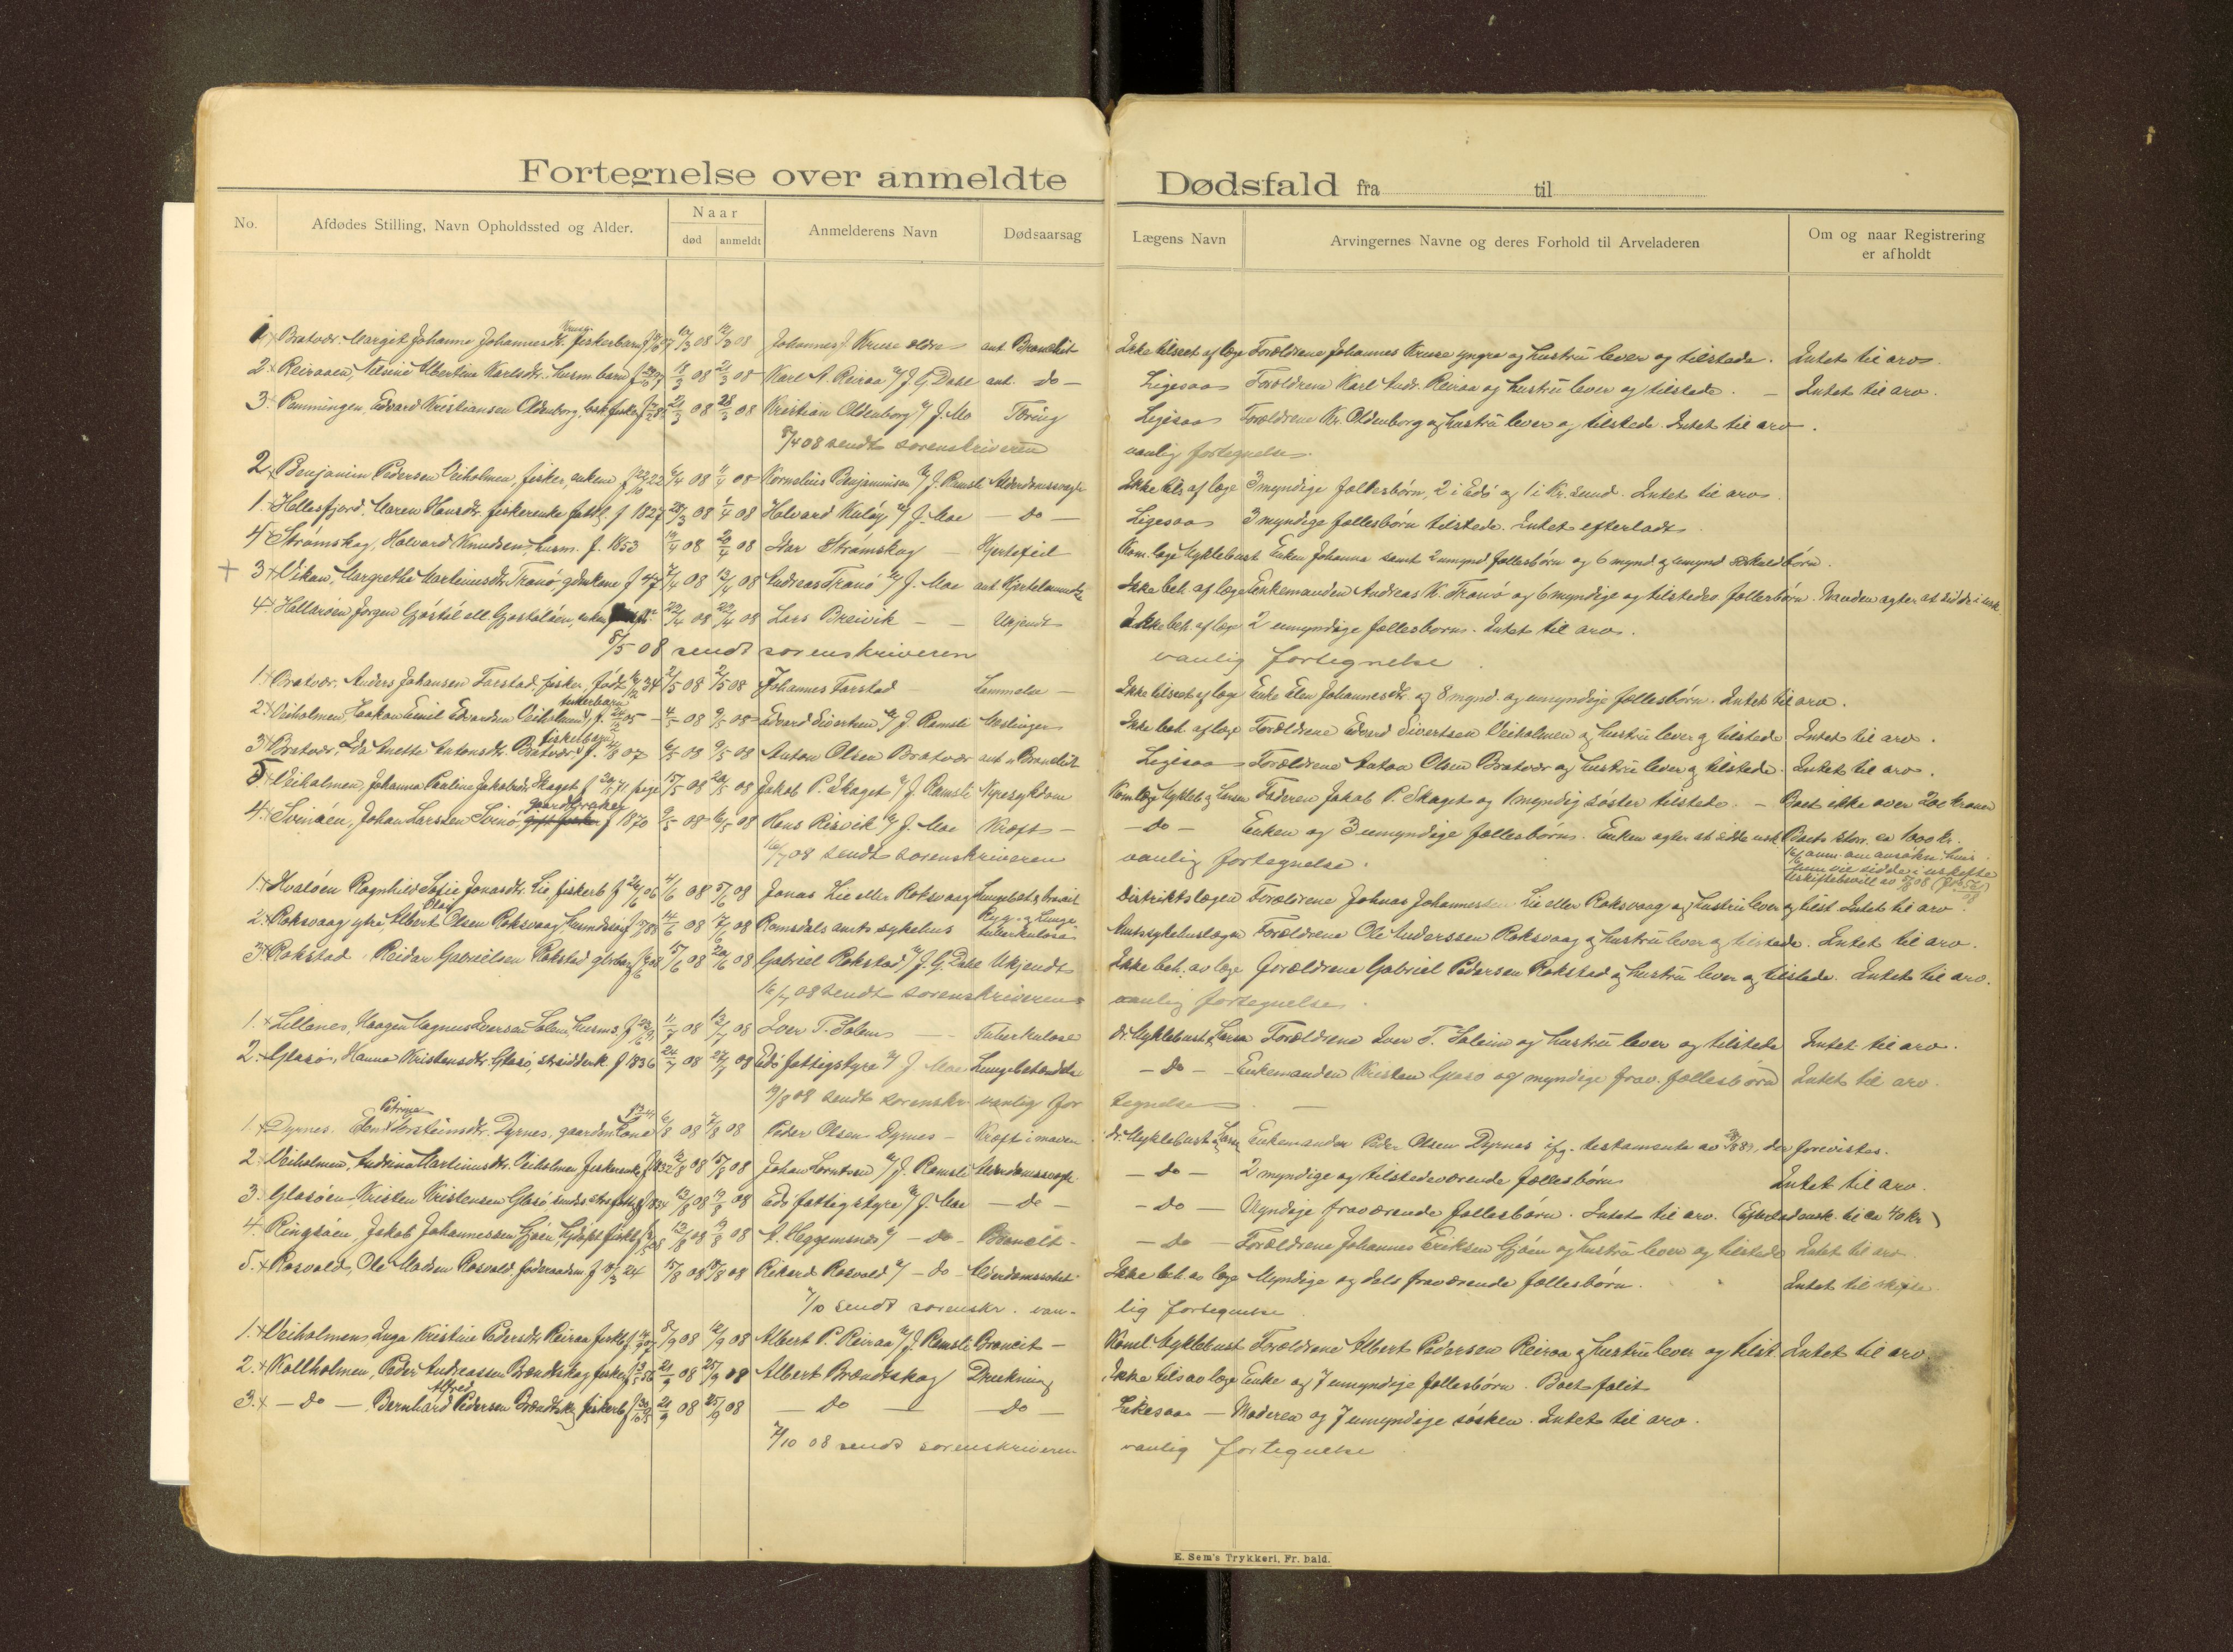 Fortegnelse over anmeldte Dødsfald fra til
No. Afdødes Stilling, Navn Opholdssted og Alder. Naar død anmeldt Anmelderens Navn Dødsaarsag Lægens Navn Arvingernes Navne og deres Forhold til Arveladeren Om og naar Registrering er afholdt
Kruse
1. + Bratvær. Margit Johanna Johannesdtr. fiskerbarn 12/3 08 12/3 08 Johannes J Kruse eldre ant Bronchit Ikke tilseet af læge Forældrene Johannes Kruse yngre og hustru lever og tilstede. Intet til arv.
2. Reiraaen, Nelsine Albertine Karlsdtr. husm barn 18/3 08 21/3 08 Karl A. Reiraa v/ J G Dahl ant. do - Ligesaa Forældrene Karl Andr. Reiraa og hustru lever og tilstede. - Intet til arv.
3. Pemmingen, Edvard Kristiansen Oldenborg, fisker 28/3 08 Kristian Oldenborg v/ J. Mo Tæring Ligesaa Forældrene Kr. Oldenborg og hustru lever og tilstede. Intet til arv.
8/4 08 sendt sorenskriveren vanlig fortegnelse.
2. Benjamin Pedersen Veiholmen, fisker, enkem f 22/10 22 6/4 08 11/4 08 Kornelius Benjaminsen v/ J. Ramsli Alderdomssvagh Ikke tils af læge 3 myndige fællesbörn, 2 i Edö og 1 i Kr.sund. Intet til arv.
1. Hellesfjord. Maren Hansdtr. fiskerenke f 1827 28/3 08 1/4 08 Halvard Kulöy v/ J. Moe - do - Ligesaa 3 myndige fællesbörn tilstede. Intet efterladt.
4 Strömskag, Halvard Knudsen, husm. f. 1853 10/4 08 20/4 08 Ivar Strömskag - Hjertefeil Kom.læge Myklebust Enken Johanna samt 2 umynd fællesbörn og 6 mynd. og umynd særkuldbörn.
+ 3 + Vikan, Margrethe Martinusdtr Tranö, f 47 7/4 08 13/4 08 Andreas Tranö v/ J. Moe ant Hjertelammelse Ikke beh. af læge Enkemanden Andreas K. Tranö og 6 myndige og tilstedev. fællesbörn. Manden agter at sidde i usk.
4. Hallaröen Jörgen Gjöstöl ell. Gjostolöen, enkem 22/4 08 29/4 08 Lars Breivik - - Ukjendt Ikke beh. af læge 2 umyndige fællesbörn. Intet til arv.
5/5 08 sendt sorenskriveren vanlig fortegnelse.
1. + Bratvær. Anders Johansen Farstad, fisker, födt 34 2/5 08 2/5 08 Johannes Farstad - Lammelse - Ikke tilseet af læge Enke Elen Johannesdtr. og 8 mynd. og umyndige fællesbörn. Intet til arv.
fiskerbarn
2. Veiholmen, Haakon Emil Edvardsen Veiholmen, f. 05 - 4/5 08 9/5 08 Edvard Sivertsen v/ J. Ramsli Meslinger Ikke beh. af læge Forældrene Edvard Sivertsen Veiholmen og hustru lever og tilstede Intet til arv.
fiskerbarn
3 + Bratvær. Ida Anette Antonsdtr. Bratvær f. 4/8 07 6/5 08 9/5 08 Anton Olsen Bratvær ant. Bronchit Ligesaa Forældrene Anton Olsen Bratvær og hustru lever og tilstede. Intet til arv.
5 + Veiholmen, Johanna Pauline Jakobsdtr Skaget f 71 pige 15/5 08 20/5 08 Jakob P. Skaget v/ J. Ramsli Nyresygdom Kom.læge Mykleb og Larsen Faderen Jakob P. Skaget og 1 myndig söster tilstede. - Boet ikke over 200 kroner
gaardbruker
4. + Svinöen, Johan Larssen Svinö, f 1870 9/5 08 16/5 08 Hans Risvik v/ J. Moe Kræft - - do - Enken og 3 umyndige fællesbörn. Enken agter at sidde usk. Boets störr. ca 1000 kr.
16/7 08 sendt sorenskriveren vanlig fortegnelse. hun vil sidde i uskiftet
1. + Hvalöen Ragnhild Sofie Jonasdtr. Lie, fiskerb f 26/6 06 4/6 08 5/6 08 Jonas Lie eller Roksvaag Distriktslægen Forældrene Johnas Johannessen Lie eller Roksvaag og hustru lever og tilst. Intet til arv.
Olaif
2. Roksvaag ytre, Albert Olsen Roksvaag, 14/6 08 17/6 08 Romsdals amts sykehus Ryg- og Lunge tuberkulose Amtssykehuslægen Forældrene Ole Anderssen Roksvaag og hustru lever og tilstede. Intet til arv.
3. Rokstad. Reidar Gabrielsen Rokstad 15/6 08 20/6 08 Gabriel Rokstad v/ J. G. Dahl Ukjendt Ikke beh. av læge Forældrene Gabriel Pedersen Rokstad og hustru lever og tilstede. Intet til arv.
16/7 08 sendt sorenskriveren vanlig fortegnelse.
1. + Lillenes, Haagen Magnus Iversen Solem, husms. 11/7 08 13/7 08 Iver T. Solem - - Tuberkulose dr. Myklebust, Larsen Forældrene Iver T. Soleim og hustru lever og tilstede Intet til arv.
2. Glasö, Hanna Kristensdtr. Glasö, f 1836 24/7 08 27/7 08 Edö fattigstyre v/ J. Moe Lungebetændelse - do - Enkemanden Kristen Glasö og myndige frav. fællesbörn Intet til arv.
19/8 08 sendt sorenskr. vanlig for tegnelse. -
Petrine
1. + Dyrnes. Elen Torsteinsdtr. Dyrnes, gaardm kone 6/8 08 7/8 08 Peder Olsen Dyrnes - Kræft i maven dr. Myklebust, Larsen Enkemanden Peder Olsen Dyrnes ifg. testamente av 88, der forevistes.
2. Veiholmen, Andrine Martinusdtr. Veiholmen fiskerenke f 1832 12/8 08 15/8 08 Johan Lorntsen v/ J. Ramsli Alderdomssvagh. - do - 2 myndige og tilstedeværende fællesbörn Intet til arv.
3. Glasöen Kristen Kristensen Glasö 13/8 08 19/8 08 Edö fattigstyre v/ J. Moe - do - - do - Myndige fraværende fællesbörn. Intet til arv. (Efterladensk. til ca 40 kr)
4. Ringsöen, Jakob Johannessen Gjöen, 13/8 08 19/8 08 A. Heggemsnes v/ - do - Bronchit - - do - Forældrene Johannes Eriksen Gjöen og hustru lever og tilstede Intet til arv.
5. + Rosvold, Ole Madsen Rosvold, föderaadsm f 24 15/8 08 19/8 08 Rikard Rosvold v/ - do - Alderdomssvagh. Ikke beh. av læge Myndige og dels fraværende fællesbörn. Intet til skifte.
7/10 sendt sorenskr. van- lig fortegnelse
1. + Veiholmen Inga Kristine Pedersdtr Reiraa fiskb f. 07 8/9 08 12/9 08 Albert P. Reiraa v/ J. Ramsli Broncit - Koml. Myklebust Forældrene Albert Pedersen Reiraa og hustru lever og tilst. Intet til arv.
2. + Kallholmen, Peder Andreassen Brændtskag, fisker f 56 21/9 08 25/9 08 Albert Brændtskag Drukning Ikke tils av læge Enke og 7 umyndige fællesbörn. Boet falit
Alfred
3. + - do - Bernhard Pedersen Brændtskag fiskerb 21/9 08 25/9 08 - do - - do - Likesaa - Moderen og 7 umyndige sösken. Intet til arv.
7/10 08 sendt sorenskriveren vanlig fortegnelse
E. Sem's Trykkeri, Fr. hald.